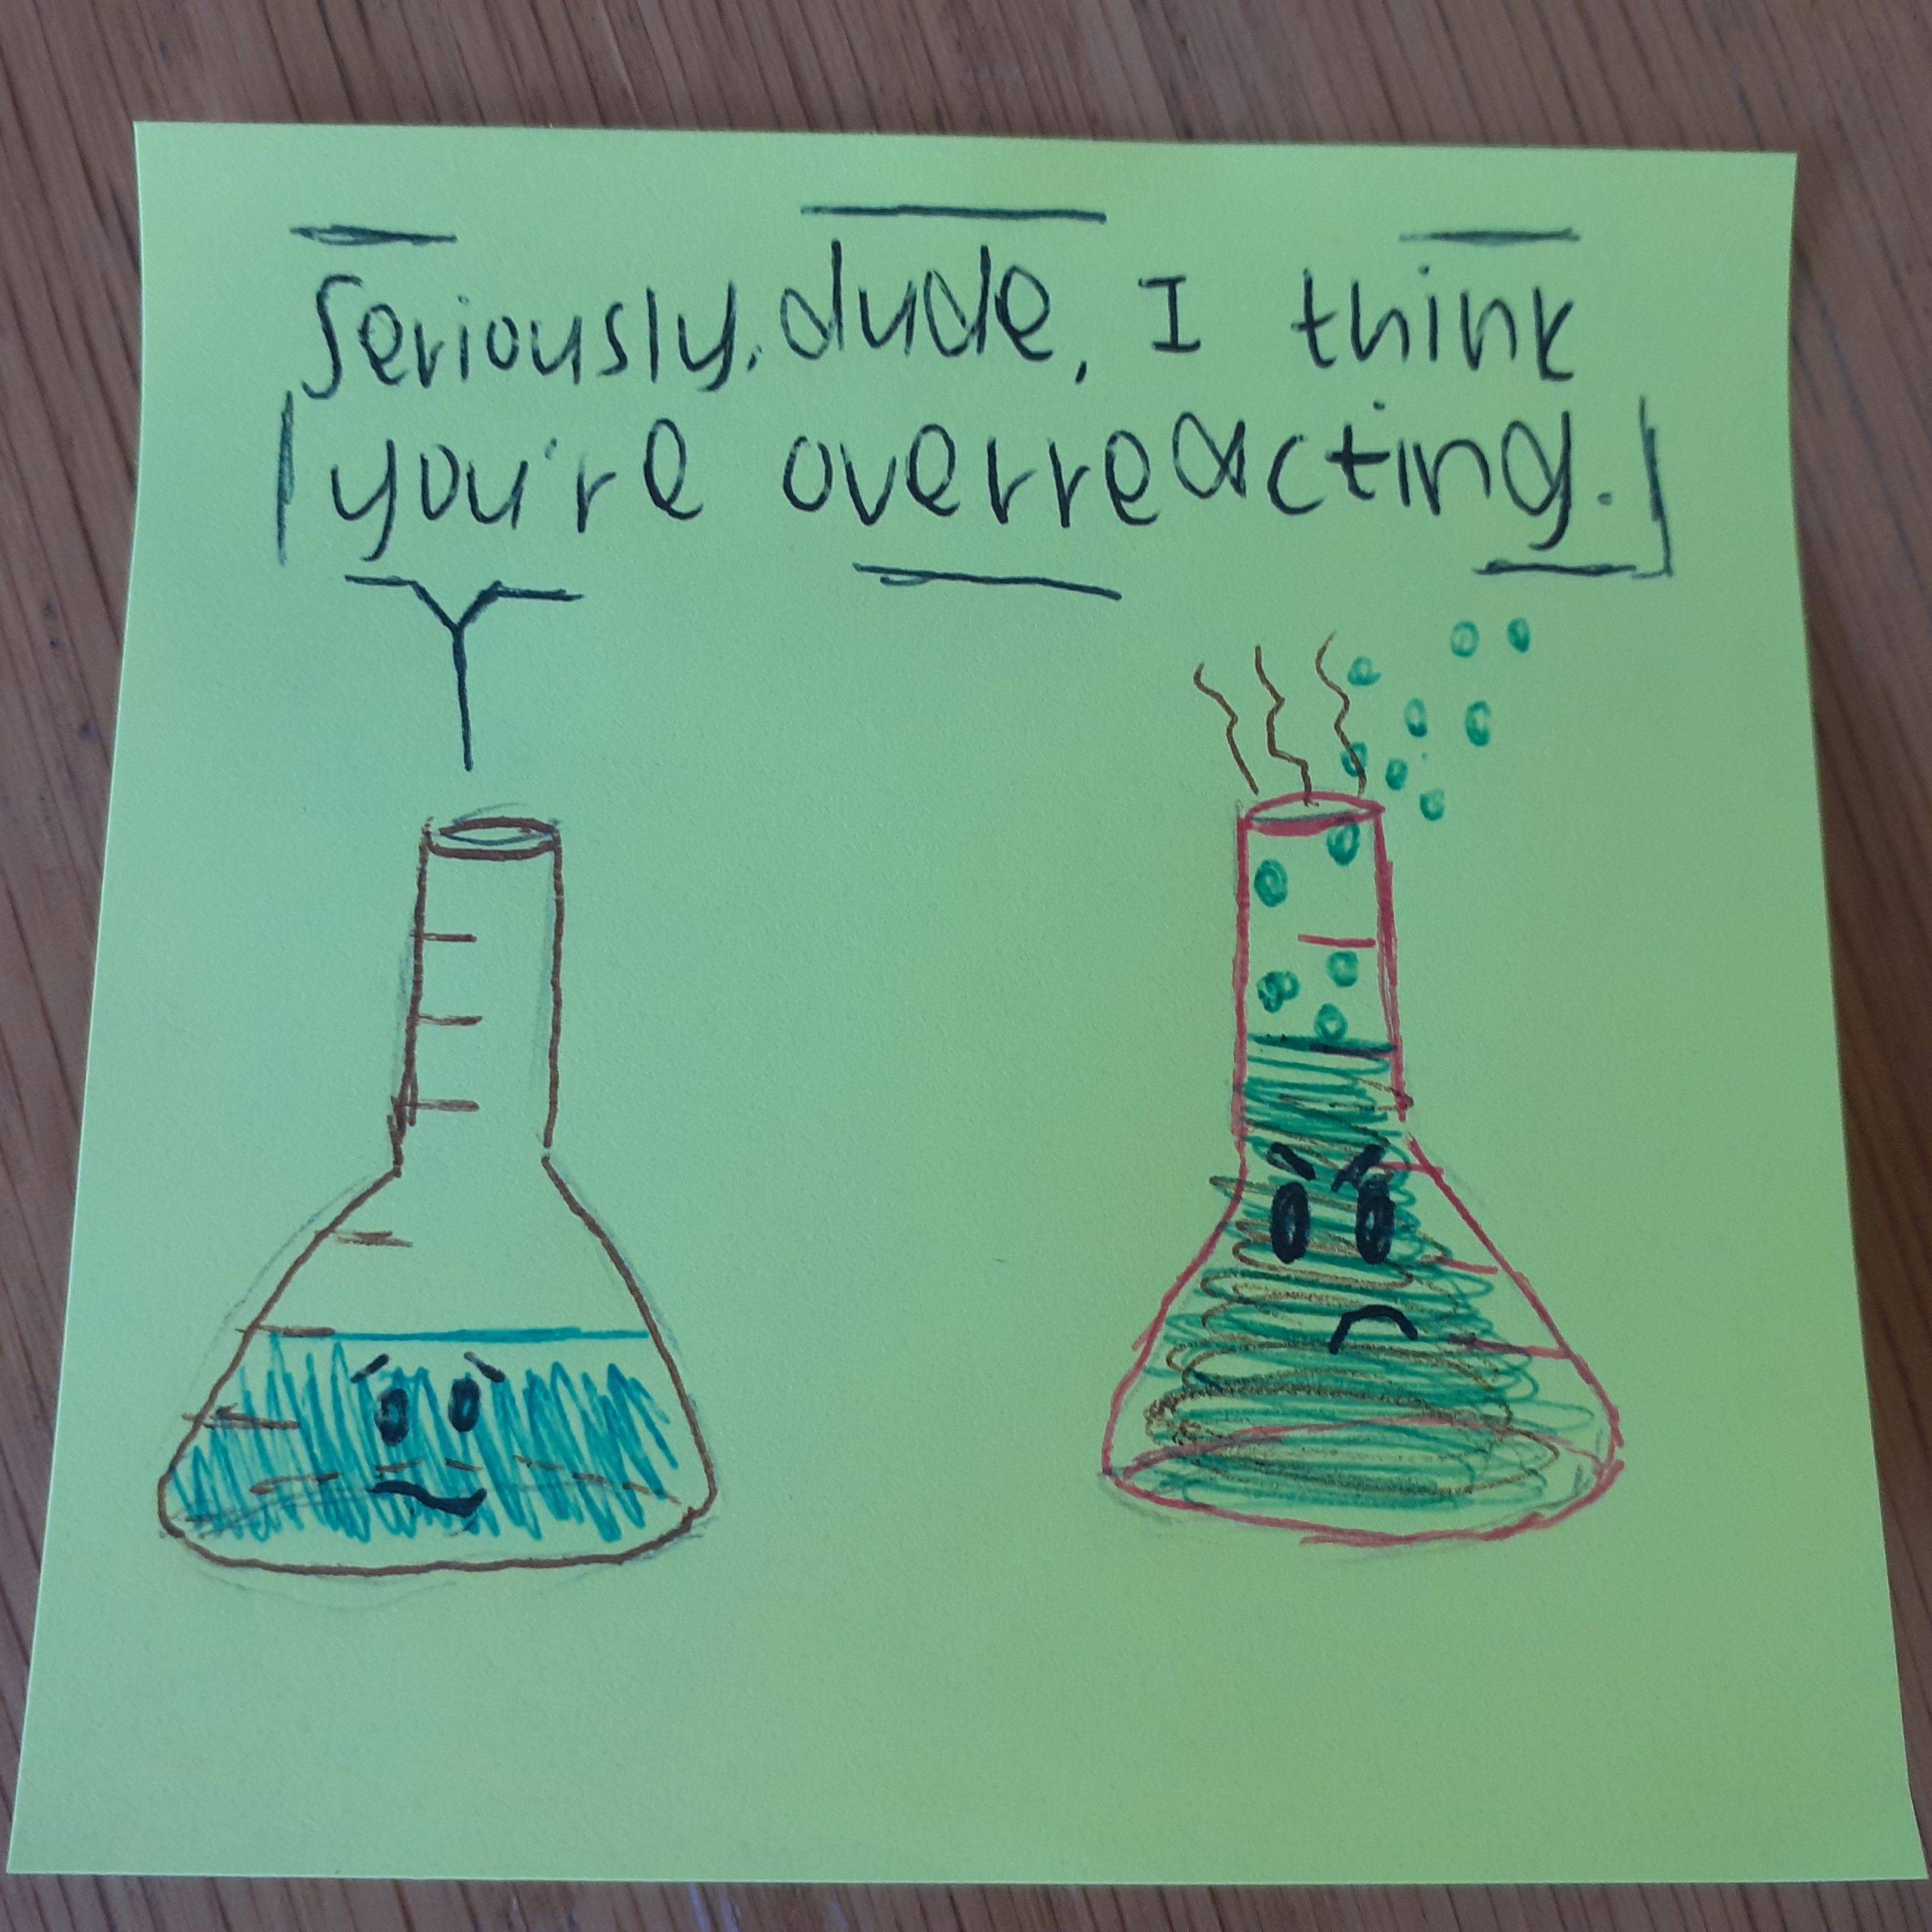 Seriously, dude, I think
you're overreacting.